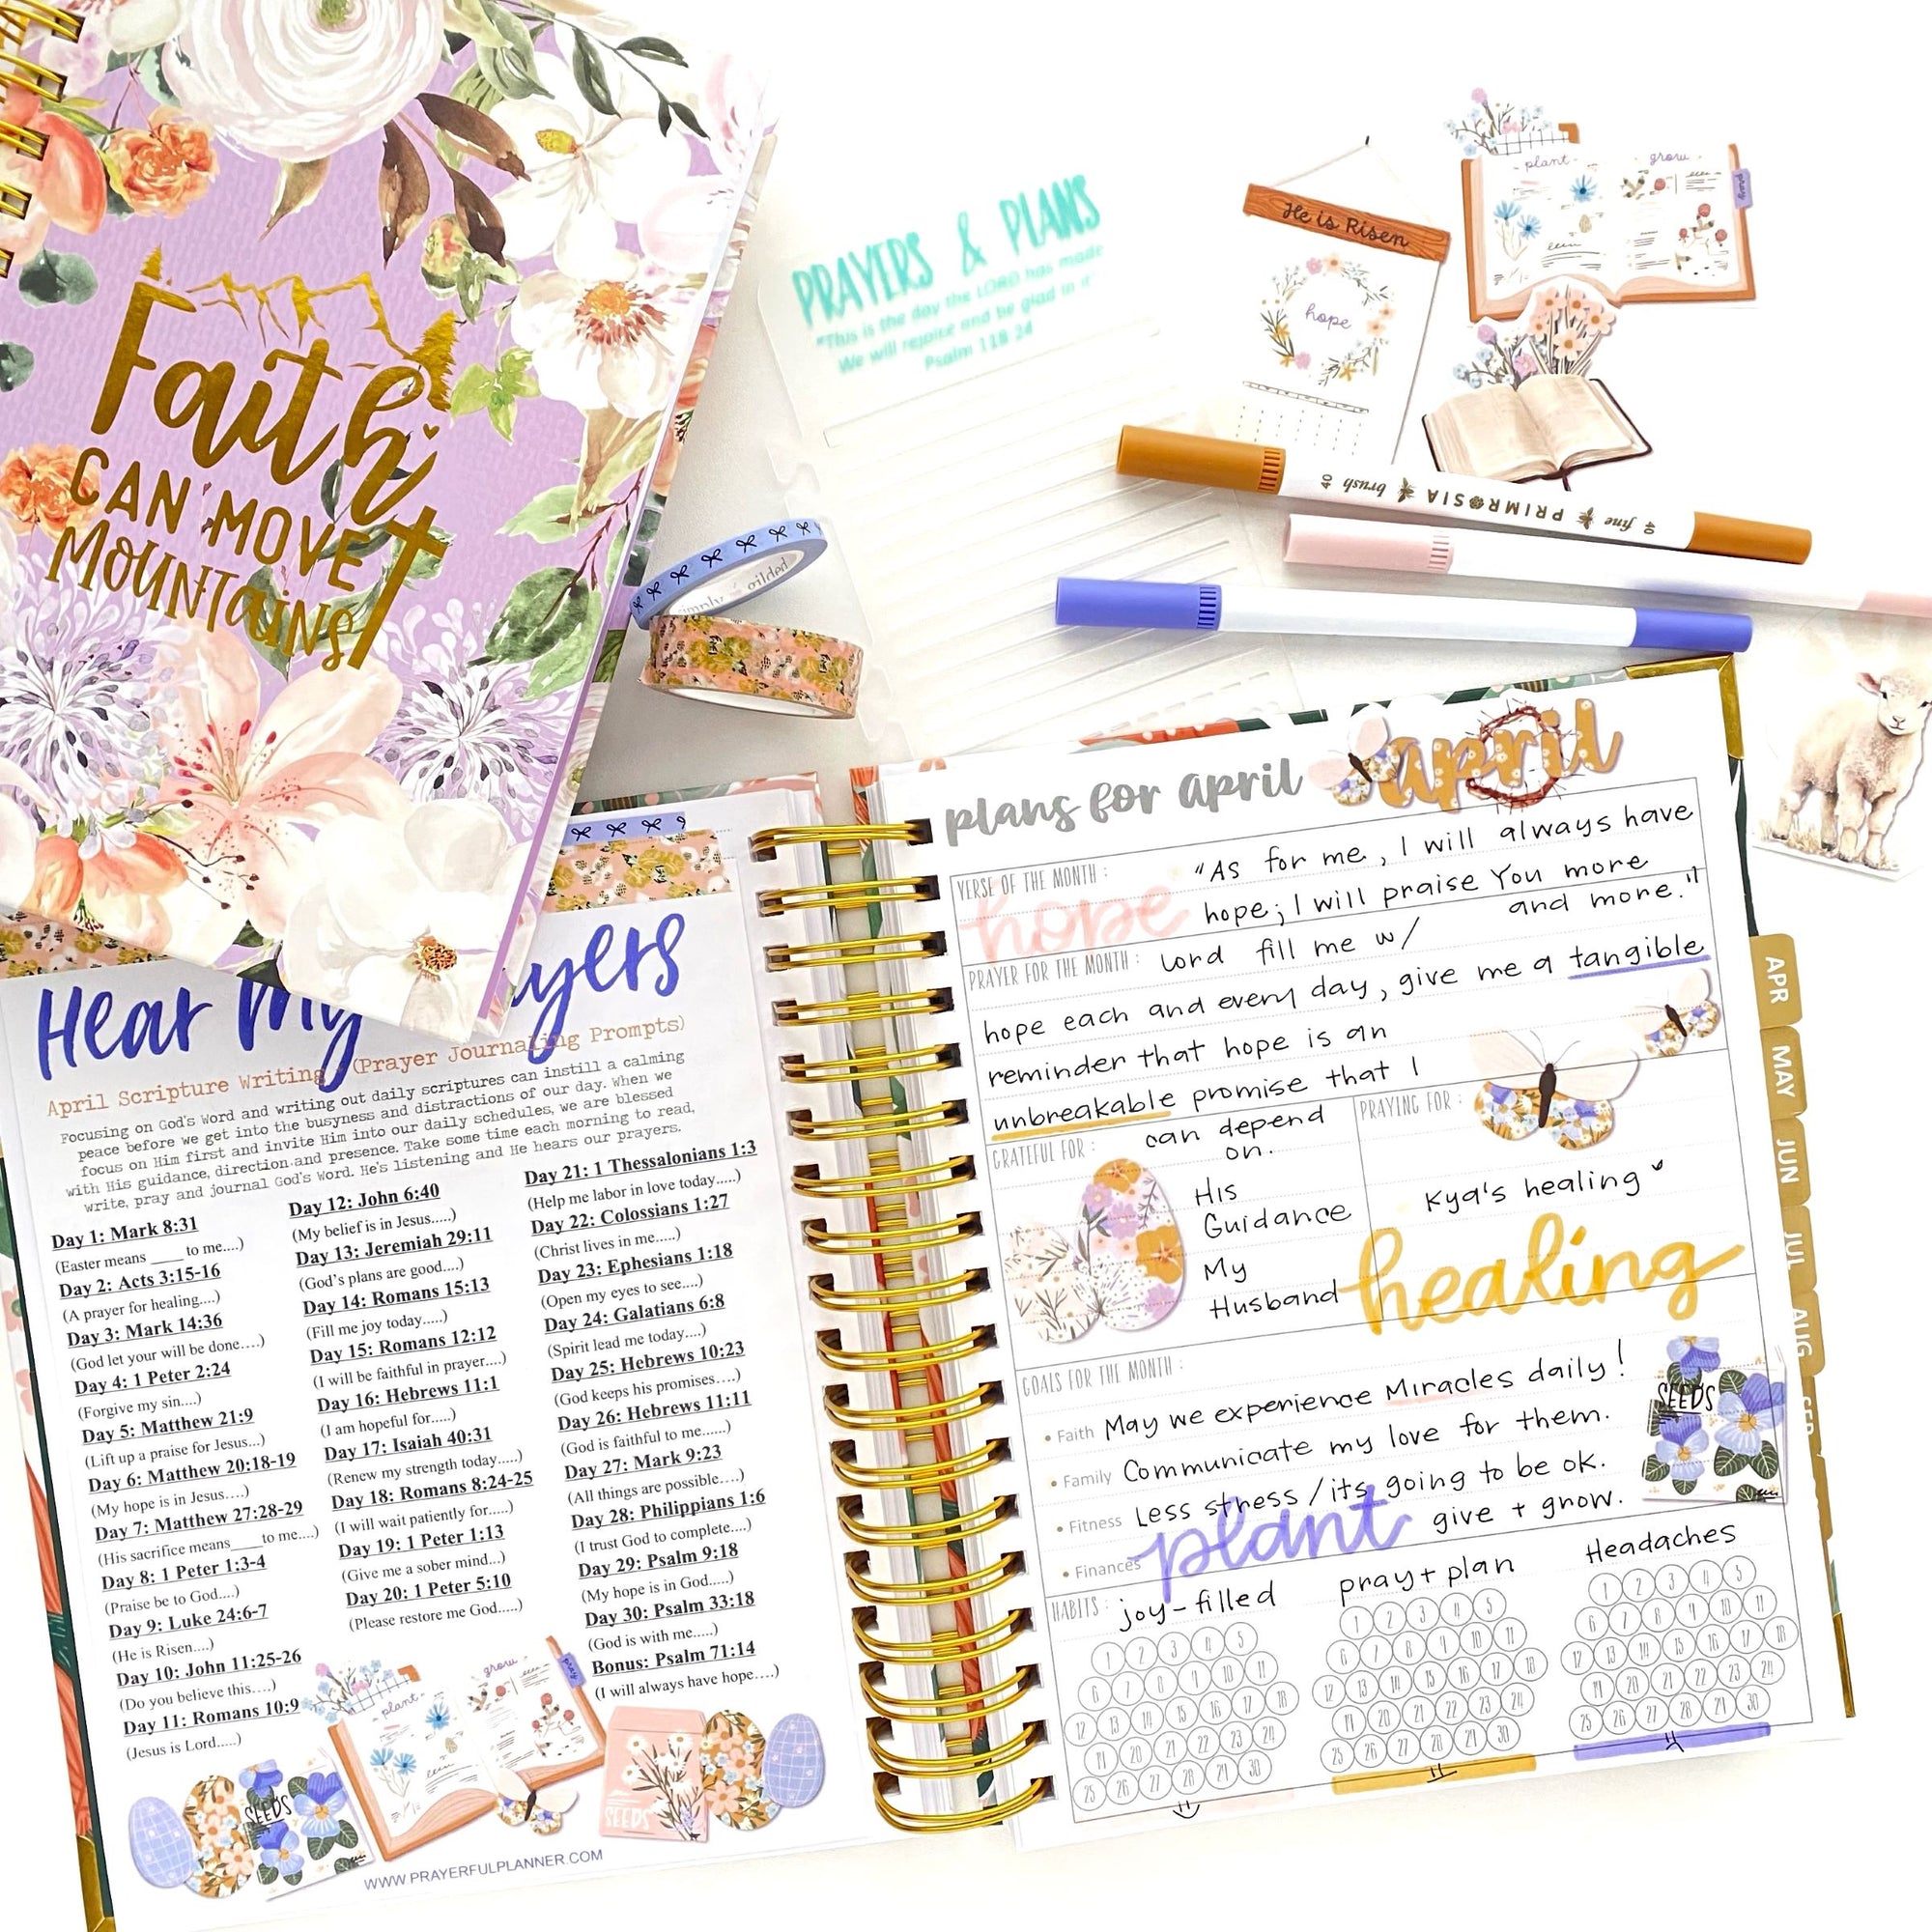 Faith
CAN MOVE
MOUNTAINS
PRAYERS & PLANS
"This is the day the LORD has made
We will rejoice and be glad in it"
Psalm 118 24
He is Risen
hope
plant
grow
pray
40 brush PRIMROSIA fine 40
simply gilded
Hear My ayers
April Scripture Writing (Prayer Journaling Prompts)
Focusing on God's Word and writing out daily scriptures can instill a calming
peace before we get into the busyness and distractions of our day. When we
focus on Him first and invite Him into our daily schedules, we are blessed
with His guidance, direction and presence. Take some time each morning to read,
write, pray and journal God's Word. He's listening and He hears our prayers.
Day 1: Mark 8:31
(Easter means ____ to me....)
Day 2: Acts 3:15-16
(A prayer for healing....)
Day 3: Mark 14:36
(God let your will be done....)
Day 4: 1 Peter 2:24
(Forgive my sin....)
Day 5: Matthew 21:9
(Lift up a praise for Jesus...)
Day 6: Matthew 20:18-19
(My hope is in Jesus....)
Day 7: Matthew 27:28-29
(His sacrifice means____to me....)
Day 8: 1 Peter 1:3-4
(Praise be to God....)
Day 9: Luke 24:6-7
(He is Risen....)
Day 10: John 11:25-26
(Do you believe this....)
Day 11: Romans 10:9
(Jesus is Lord.....)
Day 12: John 6:40
(My belief is in Jesus.....)
Day 13: Jeremiah 29:11
(God's plans are good....)
Day 14: Romans 15:13
(Fill me joy today.....)
Day 15: Romans 12:12
(I will be faithful in prayer....)
Day 16: Hebrews 11:1
(I am hopeful for.....)
Day 17: Isaiah 40:31
(Renew my strength today.....)
Day 18: Romans 8:24-25
(I will wait patiently for.....)
Day 19: 1 Peter 1:13
(Give me a sober mind...)
Day 20: 1 Peter 5:10
(Please restore me God.....)
Day 21: 1 Thessalonians 1:3
(Help me labor in love today.....)
Day 22: Colossians 1:27
(Christ lives in me.....)
Day 23: Ephesians 1:18
(Open my eyes to see....)
Day 24: Galatians 6:8
(Spirit lead me today....)
Day 25: Hebrews 10:23
(God keeps his promises....)
Day 26: Hebrews 11:11
(God is faithful to me......)
Day 27: Mark 9:23
(All things are possible....)
Day 28: Philippians 1:6
(I trust God to complete....)
Day 29: Psalm 9:18
(My hope is in God.....)
Day 30: Psalm 33:18
(God is with me.....)
Bonus: Psalm 71:14
(I will always have hope....)
plant
grow
pray
SEEDS
SEEDS
WWW.PRAYERFULPLANNER.COM
plans for april april
VERSE OF THE MONTH :
hope
"As for me, I will always have
hope; I will praise You more
and more."
PRAYER FOR THE MONTH : Lord fill me w/
hope each and every day, give me a tangible
reminder that hope is an
unbreakable promise that I
can depend
on.
GRATEFUL FOR :
His
Guidance
My
Husband
PRAYING FOR :
Kya's healing
healing
GOALS FOR THE MONTH :
• Faith May we experience Miracles daily!
• Family Communicate my love for them.
• Fitness Less stress / its going to be ok.
• Finances plant give + grow.
SEEDS
HABITS : joy-filled
pray + plan
Headaches
1 2 3 4 5
6 7 8 9 10 11
12 13 14 15 16 17 18
19 20 21 22 23 24
25 26 27 28 29 30
1 2 3 4 5
6 7 8 9 10 11
12 13 14 15 16 17 18
19 20 21 22 23 24
25 26 27 28 29 30
1 2 3 4 5
6 7 8 9 10 11
12 13 14 15 16 17 18
19 20 21 22 23 24
25 26 27 28 29 30
APR
MAY
JUN
JUL
AUG
SEP